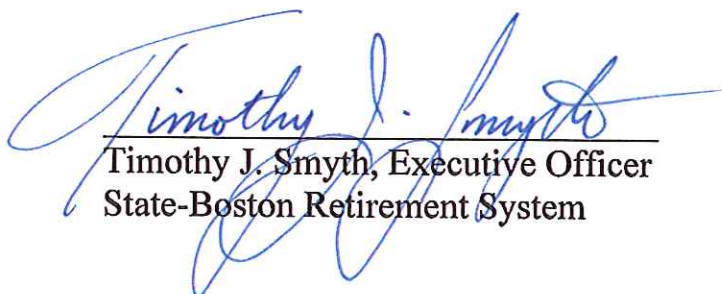 Timothy J. Smyth
Timothy J. Smyth, Executive Officer
State-Boston Retirement System